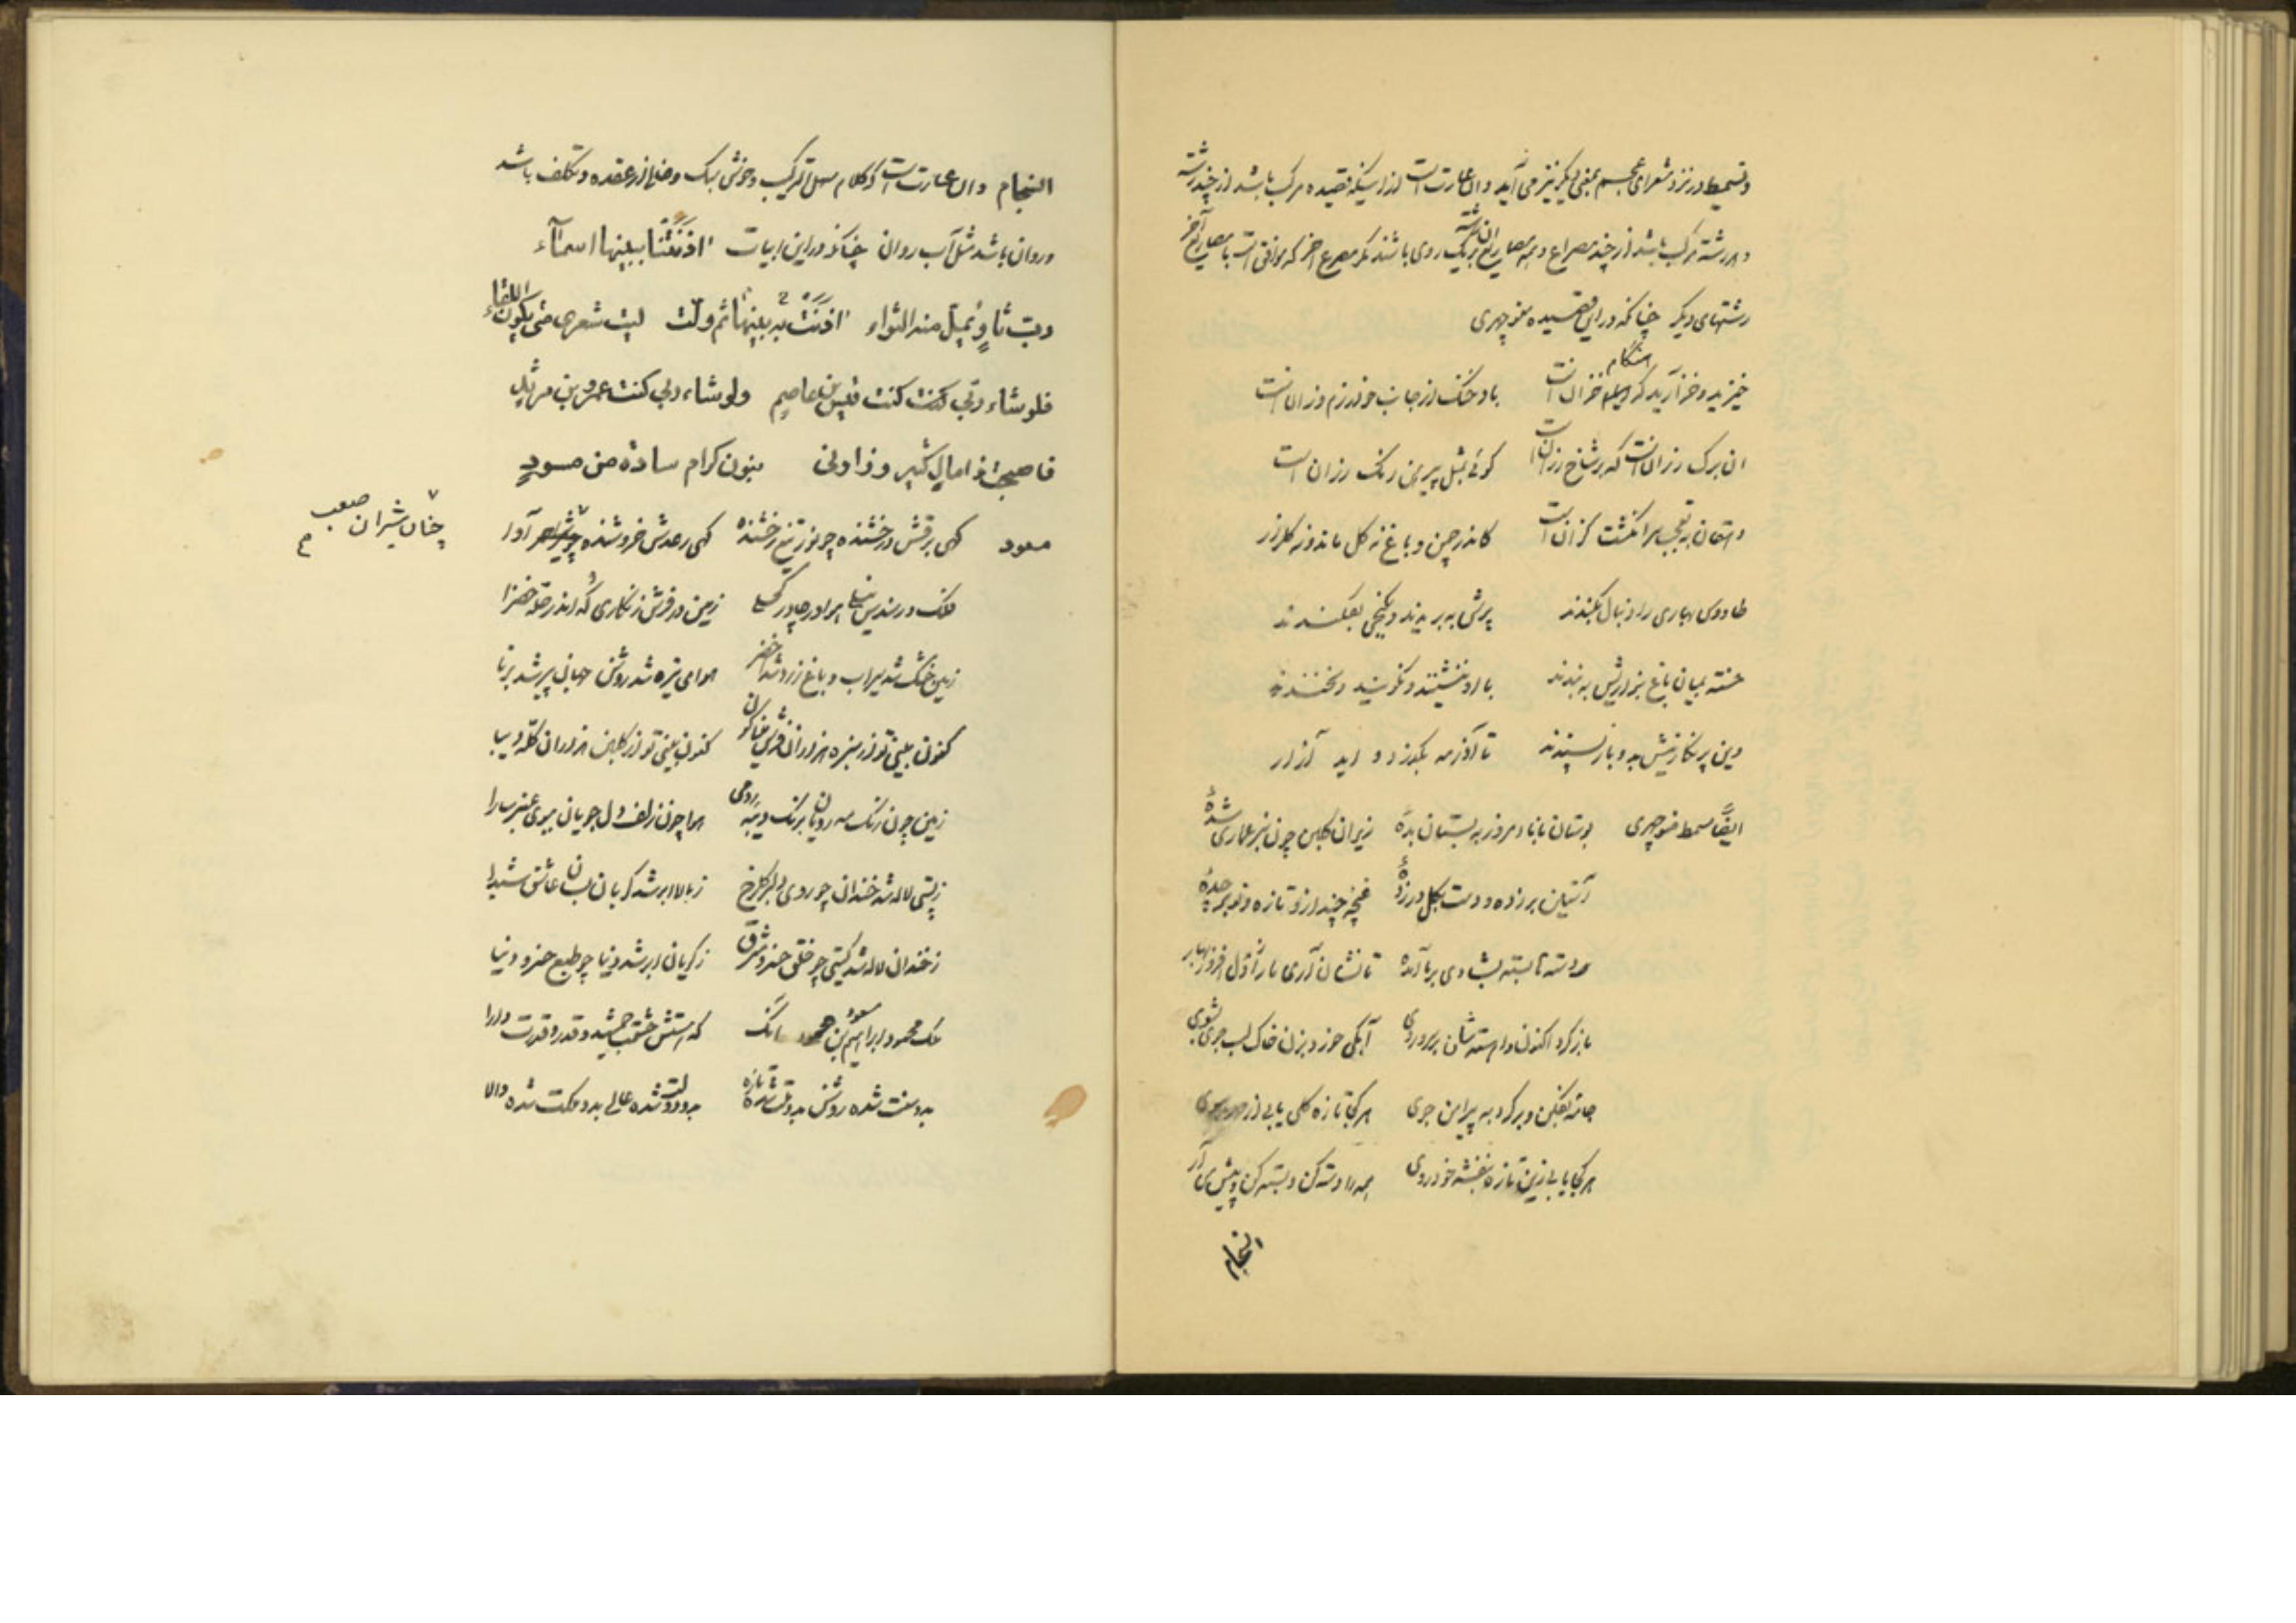 و تسمیط در نزد شعرای عجم بمعنی دیگر نیز می آید و ان عبارت است از اینکه قصیده مرکب باشد از چند رشته
و هر رشته مرکب باشد از چند مصراع و همه مصاریع ان رشته بر یک روی باشند مگر مصرع اخر که موافق است با مصاریع آخر
رشتهای دیگر چنانکه در این قصیده منوچهری
خیزید و خز آرید که هنگام خزان است باد خنک از جانب خوارزم وزان است
ان برک رزان است که بر شاخ رزان است کوئی بمثل پیرهن رنک رزان است
دهقان بتعجب سر انکشت کزان است کاندر چمن و باغ نه کل ماند و نه کلزار
طاووس بهاری را دنبال بکندند پرش به بریدند و بکنجی بفکندند
خسته بمیان باغ بزاریش به بندند با او ننشینند و نکویند و نخندند
وین پر نکارینش بدو باز نبندند تا آذر مه بکذرد و اید آزار
ایضًا مسمط منوچهری بوستان بانا امروز به بستان بدهٔ زیر ان کلبن چون سبز عماری شدهٔ
آستین برزده و دست بکل در زدهٔ غنچه چند ازو تازه و نو بر چدهٔ
دسته بسته بشادی بر ما آمدهٔ تا نشان آری ما را ز دل افروز بهار
باز کرد اکنون و اهسته شان بر روی آبکی خرد بزن خاک لب جوی بشوی
جامه بفکن و بر کرد به پیرامن جوی هر کجا تازه کلی یابی از
هر کجا یابی زین تازه بنفشه خود روی همه را دسته کن و بسته کن و پیش من آر
انسجام
انسجام و ان عبارت است از کلام سهل الترکیب و خوش سبک و خالی از عقده و تکلف باشد
و روان باشد مثل آب روان چنانکه در این ابیات اذنتنا ببینها اسمآء
رب ثاوٍ یمل منه الثواء اذنتنا به ببینها ثم ولت لیت شعری متی یکون اللقاء
فلو شاء ربی کنت کنت قیس بن عاصم ولو شاء ربی کنت عمرو بن مرثد
فاصبحت ذا مال کثیر و زارنی بنون کرام سادة من مسود
مسعود کهی برقش درخشنده چو نور تیغ رخشنده کهی رعدش خروشنده آوا
چنان شیران صعب
فلک در سندس نیلی هوا در چادر کحلی زمین در فرش زنکاری که اندر حله خضرا
زمین خشک شد سیراب و باغ زرد شد اخضر هوای تیره شد روشن جهان پیر شد برنا
کنون بینی تو از سبزه هزاران فرش میناکون کنون بینی تو از کلبن هزاران کله دیبا
زمین چون رنک مه رویان برنک دیبه رومی هوا چون زلف دلجویان ببوی عنبر سارا
زپستی لاله شد خندان چو روی دلبر کلرخ زبالا ابر شد کریان بسان عاشق شیدا
زخندان لاله شد کیتی چو خلق خسرو مشرق زکریان ابر شد دنیا چو طبع خسرو دنیا
ملک محمود ابراهیم بن مسعود که هستش حشمت جمشید و قدر و قدرت دارا
بدو سنت شده روشن بدو ملت شده تازه بدو دولت شده عالی بدو ملکت شده والا